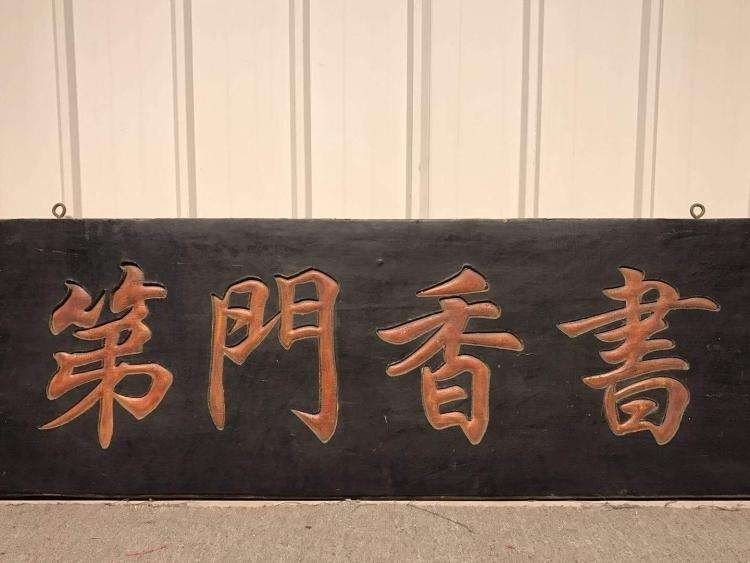 書香門第